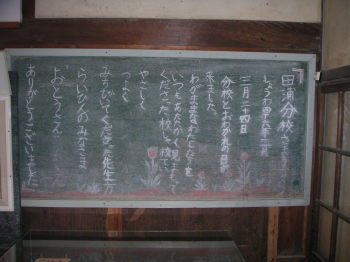 田浦分校
しょうわ四十八年
三月二十四日
分校とおわかれの日が
来ました。
わがままなわたしたちを
いつもあたたかく見まもって
くださった校長先生
やさしく
つよく
みちびいてくださった先生方
らいひんのみなさま
おとうさん
ありがとうございました